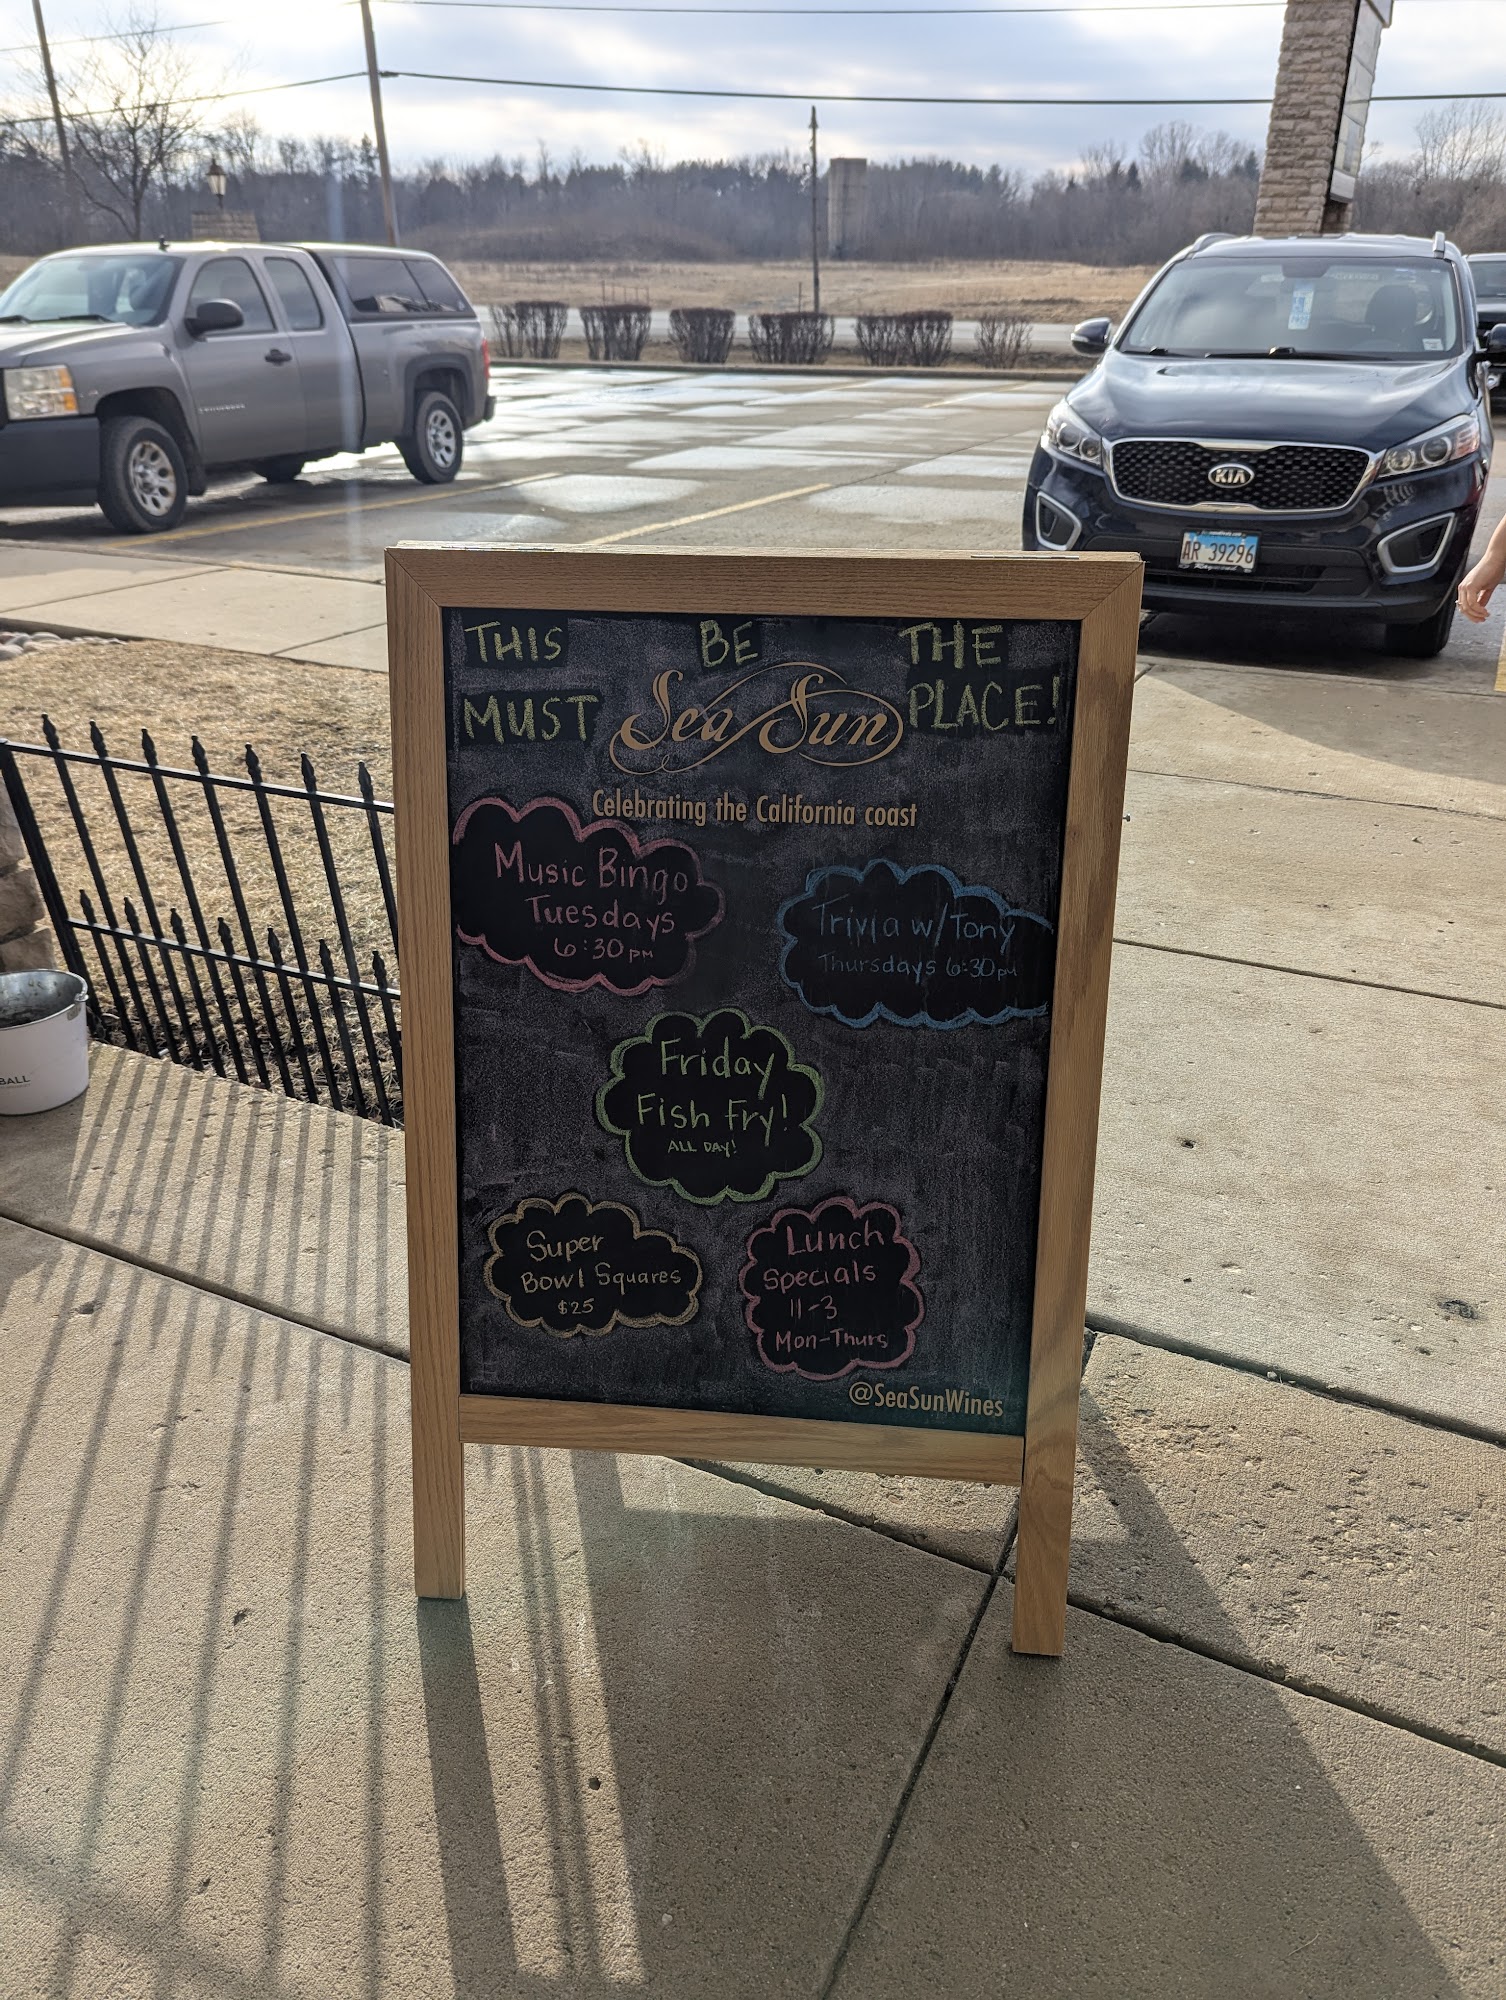 THIS BE THE
MUST PLACE!
Sea Sun
Celebrating the California coast
Music Bingo
Tuesdays
6:30 PM
Trivia w/ Tony
Thursdays 6:30 PM
Friday
Fish Fry!
ALL DAY!
Super
Bowl Squares
$25
Lunch
Specials
11-3
Mon-Thurs
@SeaSunWines
KIA
AR 39296
BALL